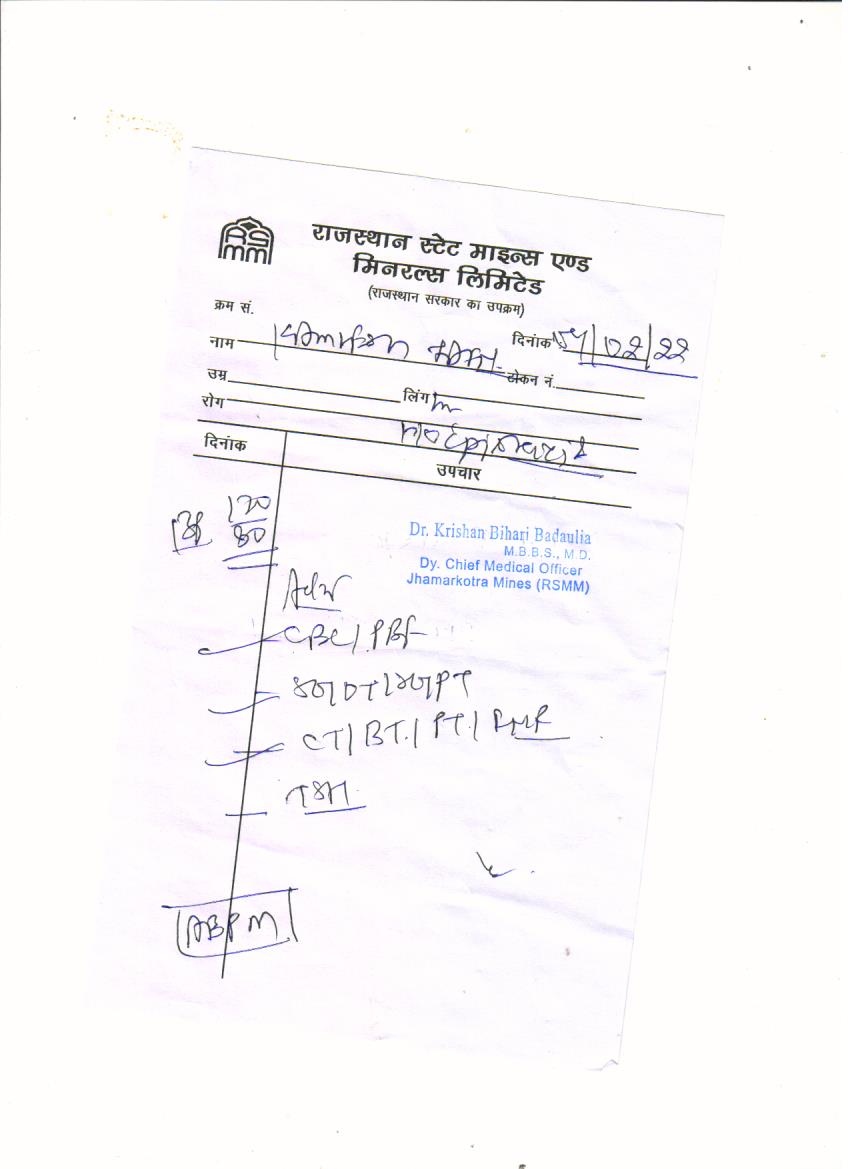 RS
MM
राजस्थान स्टेट माइन्स एण्ड
मिनरल्स लिमिटेड
(राजस्थान सरकार का उपक्रम)
क्रम सं.
दिनांक /02/22
नाम
टोकन नं.
उम्र लिंग m
रोग
H/o Epistaxis
दिनांक उपचार
120
80
Dr. Krishan Bihari Badaulia
M.B.B.S., M.D.
Dy. Chief Medical Officer
Jhamarkotra Mines (RSMM)
Adv
CBC/PBF
SGOT/SGPT
CT/BT./PT/
TSH
ABPM